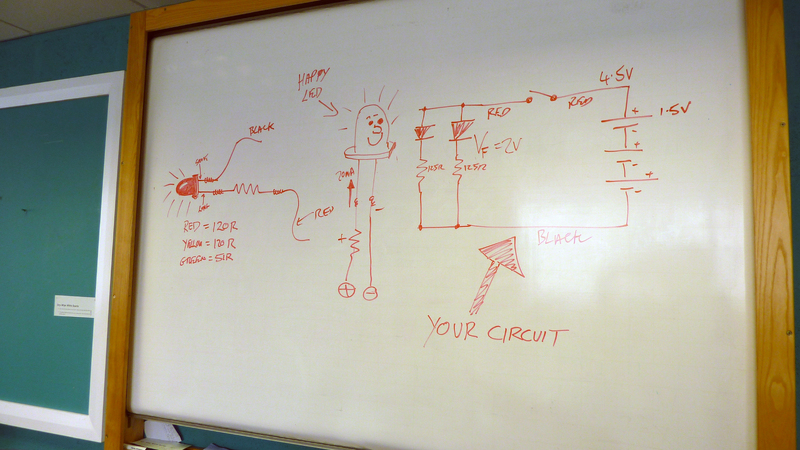 HAPPY
LED
BLACK
RED
RED = 120R
YELLOW = 120R
GREEN = 51R
20mA
+
-
+
-
4.5V
1.5V
RED
RED
VF = 2V
125R
125R
+
-
+
-
+
-
BLACK
YOUR CIRCUIT